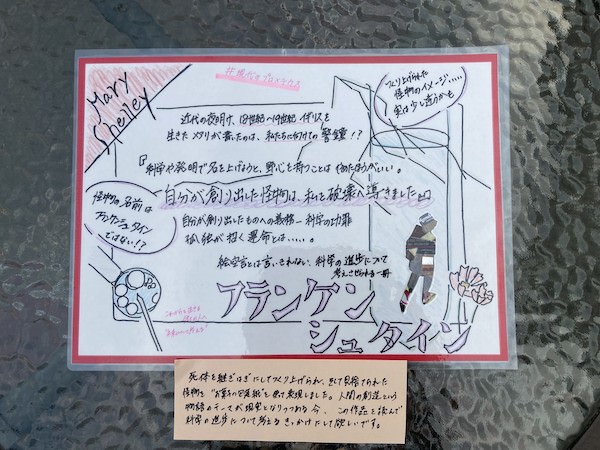 Mary
Shelley
#現代のプロメテウス
つくり上げられた
怪物のイメージ……
実は少し違うかも
近代の夜明け、18世紀〜19世紀イギリスを
生きたメアリが書いたのは、私たちに向けての警鐘!?
『科学や発明で名を上げようと、野心を持つことは
自分が創り出した怪物は、私を破棄へ導きました』
怪物の名前は
フランケンシュタイン
ではない!?
自分が創り出したものへの義務―科学の功罪
孤独が招く運命とは……。
絵空言とは言いきれない、科学の進歩について
考えさせられる一冊
フランケン
シュタイン
死体を継ぎはぎにしてつくり上げられ、そして見捨てられた
怪物を"お菓子の包装紙"を使って表現しました。人間の創造という
物語のテーマが現実となりつつある今、この作品を読んで
科学の進歩について考えるきっかけにして欲しいです。